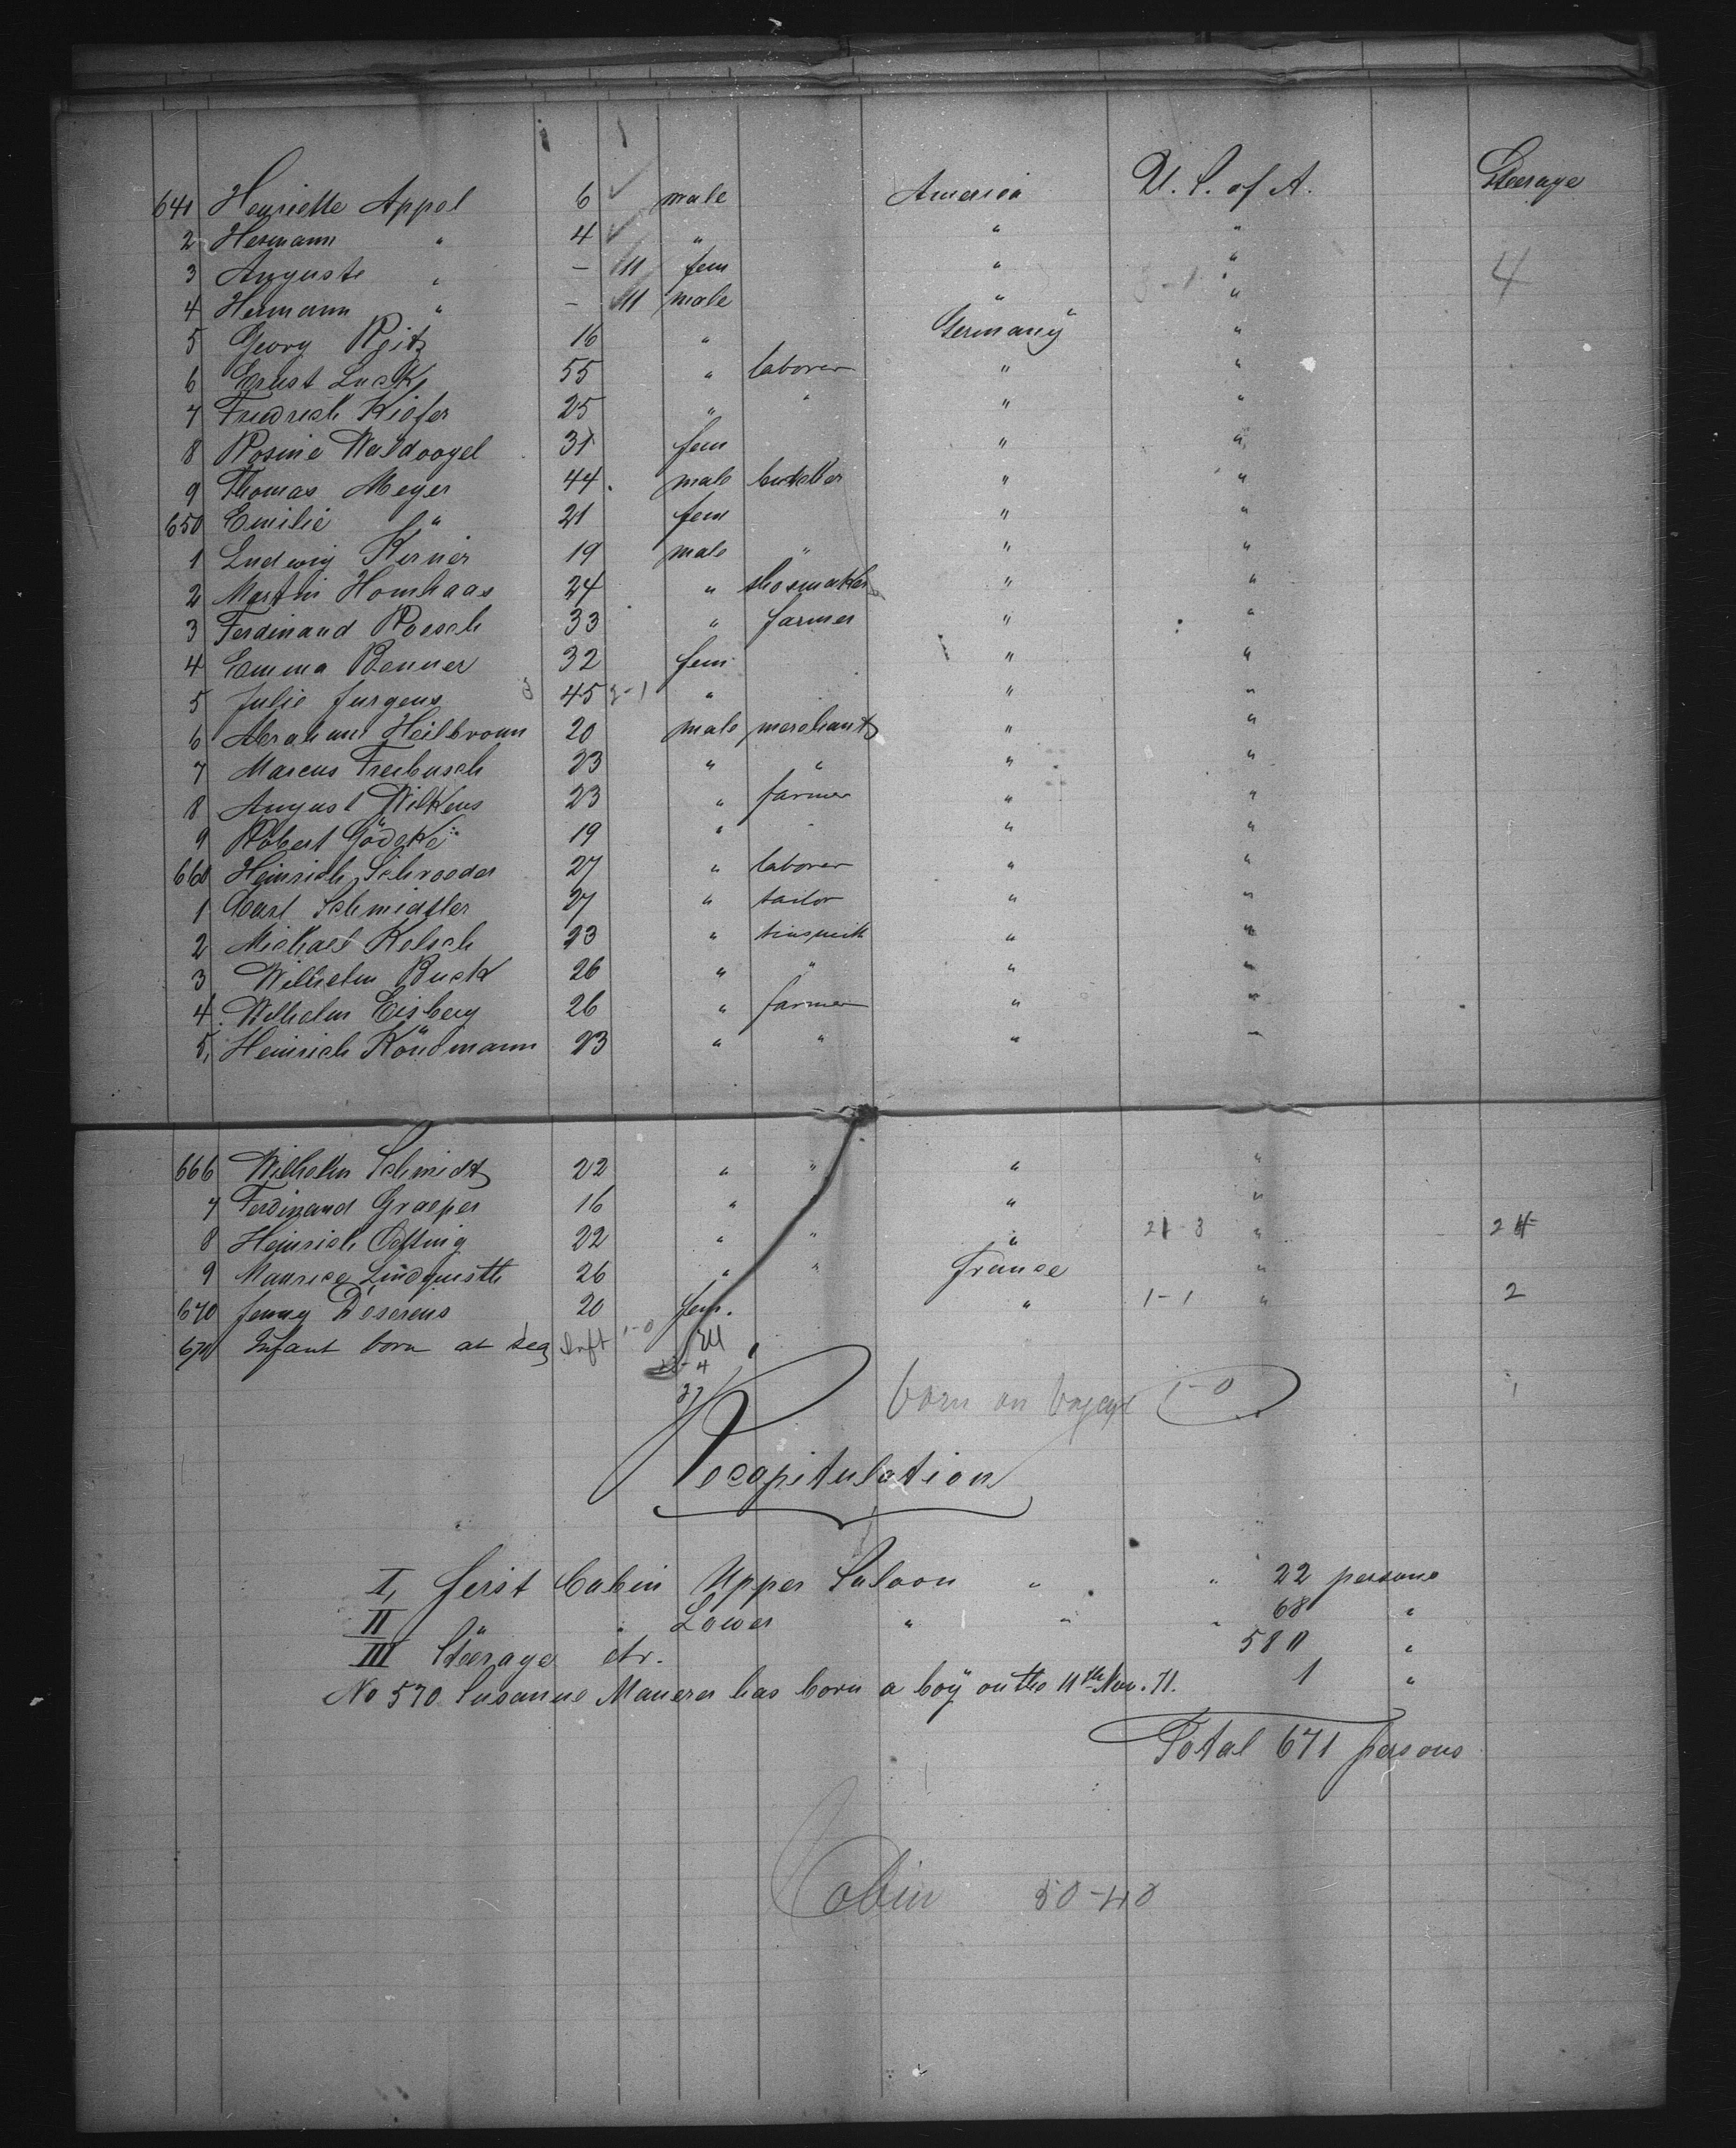 641 Henriette Appel 6 ✓ male America U. S. of A. Steerage
2 Hermann " 4 ✓ " " "
3 Auguste " – 11 fem " "
4 Hermann " – 11 male " " 4
5 Georg Reitz 16 " Germany "
6 Ernst Luck 55 " laborer " "
7 Friedrich Kiefer 25 " " " "
8 Rosine Waldvogel 31 fem " "
9 Thomas Meyer 44 male butcher " "
650 Emilie " 21 fem " "
1 Ludwig Kerner 19 male " " "
2 Martin Homhaas 24 " shoemaker " "
3 Ferdinand Roesch 33 " farmer " "
4 Emma Benner 32 fem " "
5 Julie Jurgens 45 3-1 " " "
6 Abraham Heilbronn 20 male merchant " "
7 Marcus Freibusch 23 " " " "
8 August Wilkens 23 " farmer " "
9 Robert Gödeke 19 " " " "
660 Heinrich Schroeder 27 " laborer " "
1 Carl Schmidtler 27 " tailor " "
2 Michael Kelsch 23 " tinsmith " "
3 Wilhelm Buck 26 " " " "
4 Wilhelm Eisberg 26 " farmer " "
5 Heinrich Köndmann 23 " " " "
666 Wilhelm Schmidt 22 " " " "
7 Ferdinand Graeper 16 " " " "
8 Heinrich Oetting 22 " " " 21-3 " 24
9 Maurice Lindquisth 26 " " France "
670 Jenny Deserens 20 fem. " 1-1 " 2
671 Infant born at sea Inft 1-0
born on voyage 1-0 1
Recapitulation
I, first Cabin Upper Saloon " " 22 persons
II " " Lower " " " 68 "
III Steerage etr. 580 "
No 570 Susanne Maurer has born a boÿ on the 11th Nov. 71. 1 "
Total 671 persons
Cabin 50-40